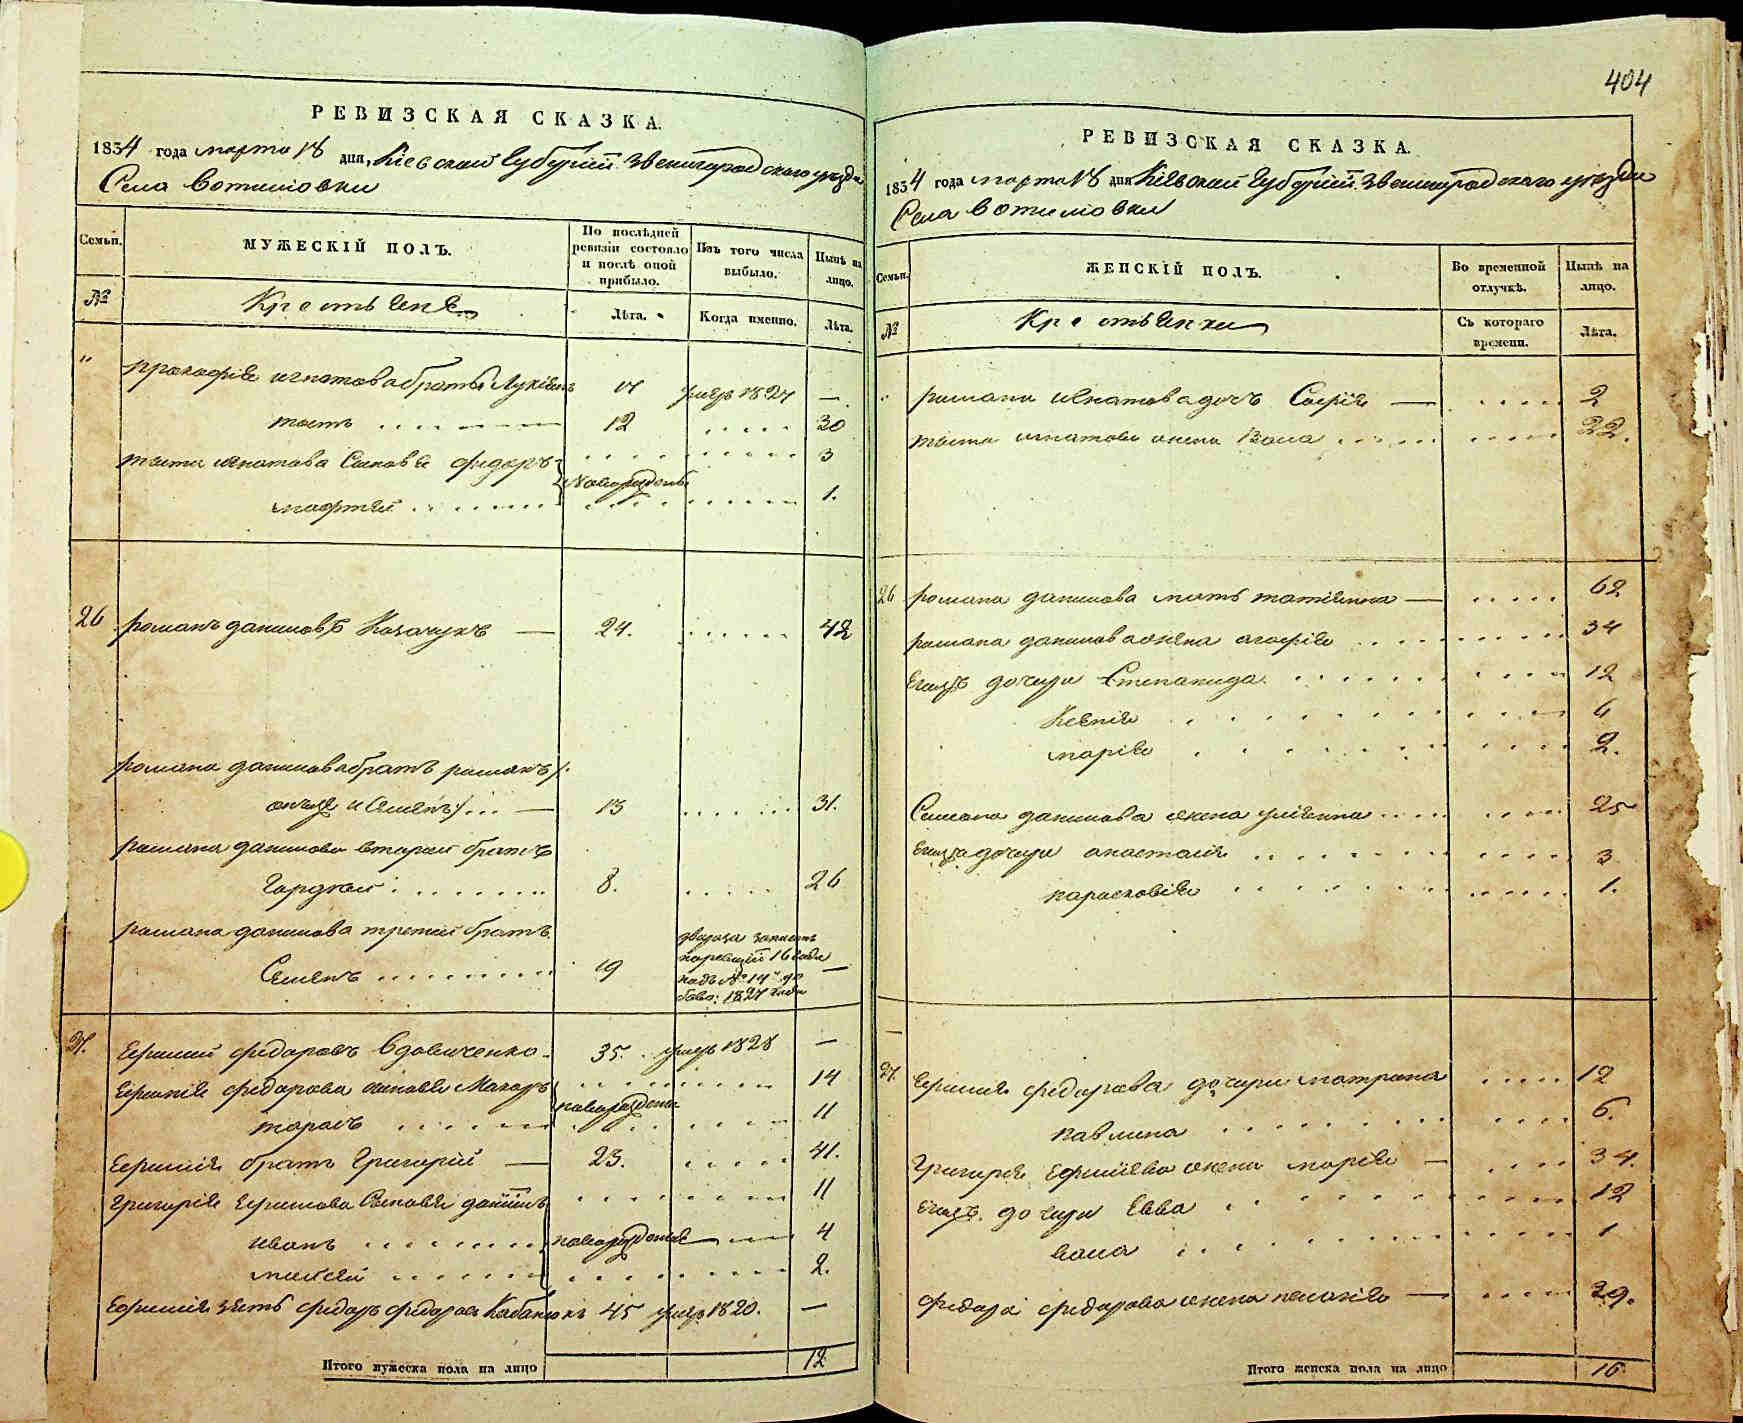 РЕВИЗСКАЯ СКАЗКА.
1834 года марта 18 дня, Кіевской Губерніи Звенигородскаго уезда
Села Вотилиовки
Семьи.
МУЖЕСКІЙ ПОЛЪ.
По послѣдней ревизіи состояло и послѣ оной прибыло.
Изъ того числа выбыло.
Нынѣ на лицо.
№
Крестьяне
Лѣта.
Когда именно.
Лѣта.
" Прокофія игнатова братья Лукіянъ 17 умеръ 1827 —
тытъ 12 30
тыта игнатова Сыновья федоръ 3
новорожденъ
мафтей 1.
26 романъ даниловъ Казачукъ — 24. 42
романа данилова братъ романъ/
онъже и Семенъ/ — 13 31.
романа данилова вторый братъ
Гордѣй 8. 26
романа данилова третій братъ
Семенъ 19
ревизіи 16 года
подъ № 14
1827 года —
27. Ефимій федоровъ Вдовиченко 35. умеръ 1828 —
Ефимія федорова сыновья Макаръ 14
новорожден
тарасъ 11
Ефимія братъ Григорій — 23. 41.
Григорія Ефимова Сыновья даніилъ 11
иванъ новорожденъ 4
мисѣй 2.
Ефимія зять федоръ федоровъ Кабанюкъ 45 умеръ 1820. —
Итого мужеска пола на лицо 12
404
РЕВИЗСКАЯ СКАЗКА.
1834 года марта 18 дня Кіевской Губерніи Звенигородскаго уезда
Села Вотилиовки
Семьи.
ЖЕНСКІЙ ПОЛЪ.
Во временной отлучкѣ.
Нынѣ на лицо.
№
Крестьянки
Съ котораго времени.
Лѣта.
" романа игнатова дочь Софія — 2
тыта игнатова жена Васа 22.
26 романа данилова мать татіянна — 62
романа данилова жена агафія 34
Егожъ дочери Степанида 12
Ксенія 6
марія 2.
Симона данилова жена уліянна 25
Егожъ дочери анастасія 3
парасковія 1.
27. Ефимія федорова дочери матрона 12
павлина 6.
Григорія Ефимова жена марія — 34.
Егожъ дочери Евва 12
васа 1
федора федорова жена пелагія — 29.
Итого женска пола на лицо 16